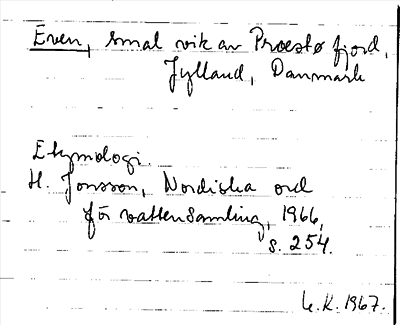 Even, smal vik av Præstø fjord,
Jylland, Danmark
Etymologi.
H. Jonsson, Nordiska ord
för vattensamling, 1966,
s. 254.
G.K. 1967.